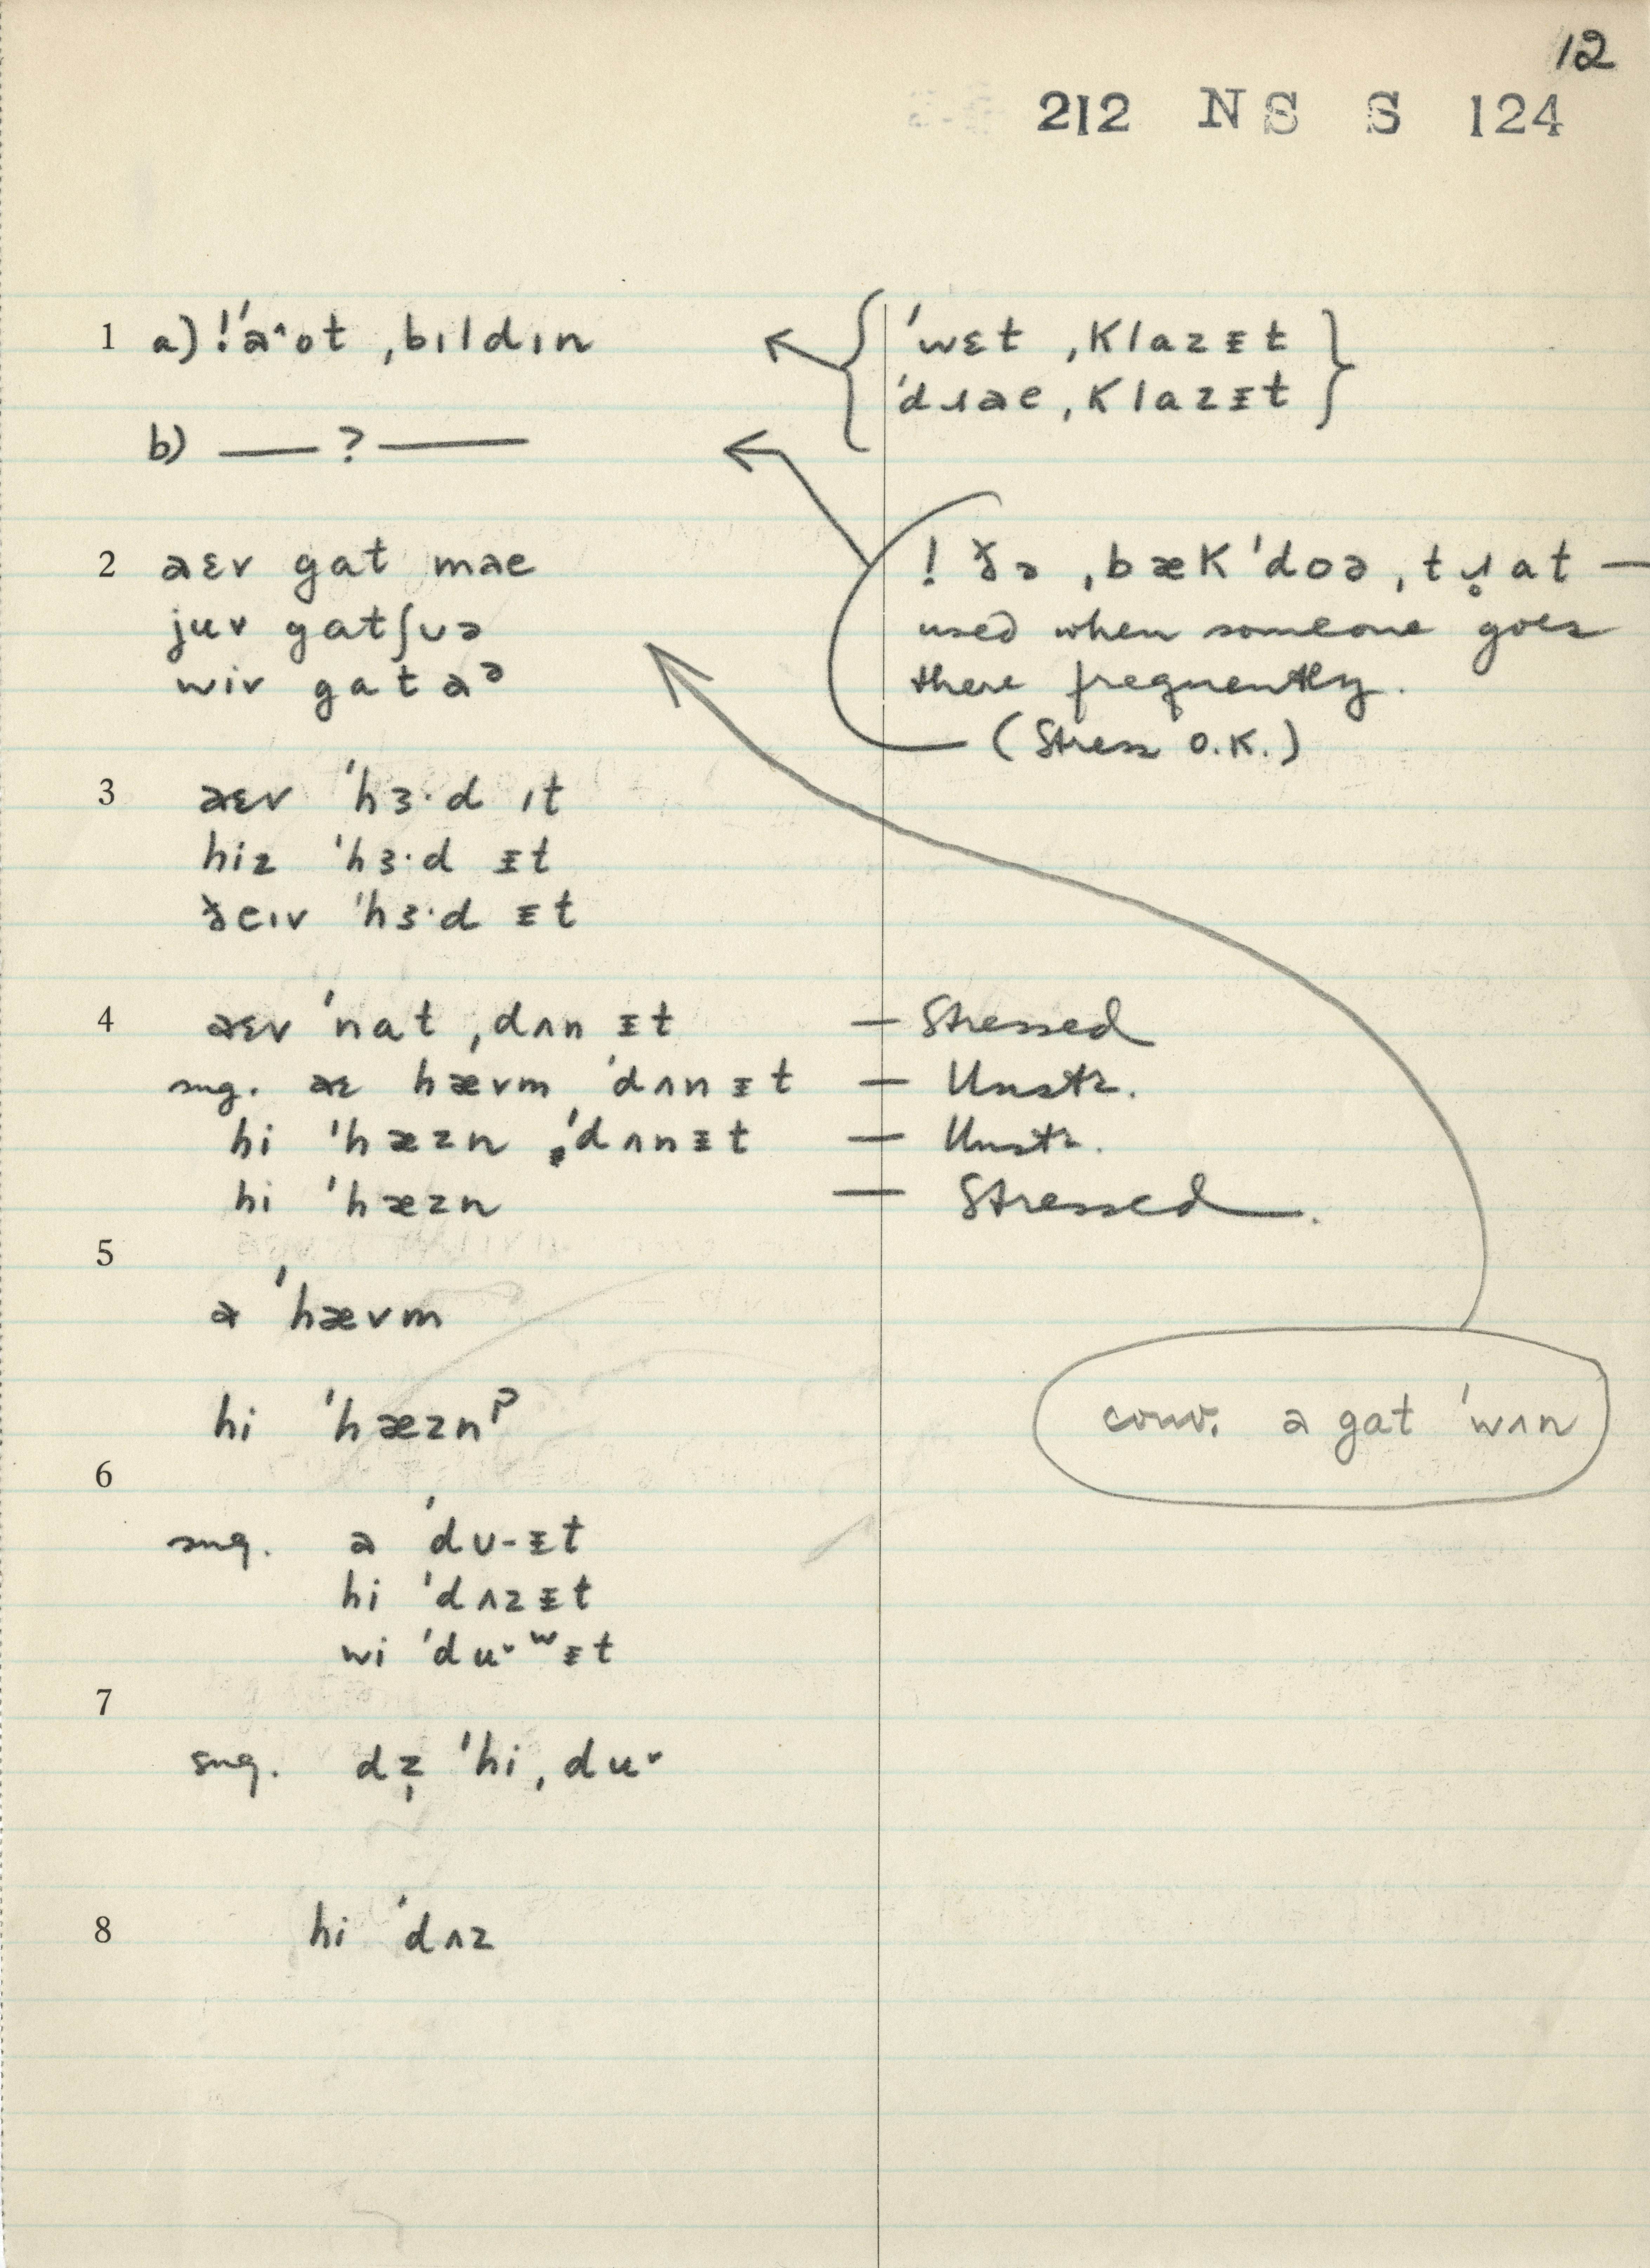 12
212 NS S 124
1 a) ! ˈa^ot ˌbɪldɪn
{ ˈwɛt ˌKlazɪ̵t
ˈdɹae ˌKlazɪ̵t }
b) — ? —
2 aɛv gat mae
juv gatʃʊə
wiv gat aᵊ
! ðə ˌbæK ˈdoə ˌtɹ̥at —
used when someone goes
there frequently.
(Stress O.K.)
3 aɛv ˈhɜ·d ɪt
hiz ˈhɜ·d ɪ̵t
ðeɪv ˈhɜ·d ɪ̵t
4 aɛv ˈnat ˌdʌn ɪ̵t — Stressed
sug. aɛ hævm ˈdʌn ɪ̵t — Unstr.
hi ˈhæzn ˈdʌnɪ̵t — Unstr.
hi ˈhæzn — Stressed.
5
a ˈhævm
hi ˈhæznʔ
conv. a gat ˈwʌn
6
sug. a ˈdʊ-ɪ̵t
hi ˈdʌzɪ̵t
wi ˈduˇʷɪ̵t
7
sug. dẓ ˈhi ˌduˇ
8 hi ˈdʌz